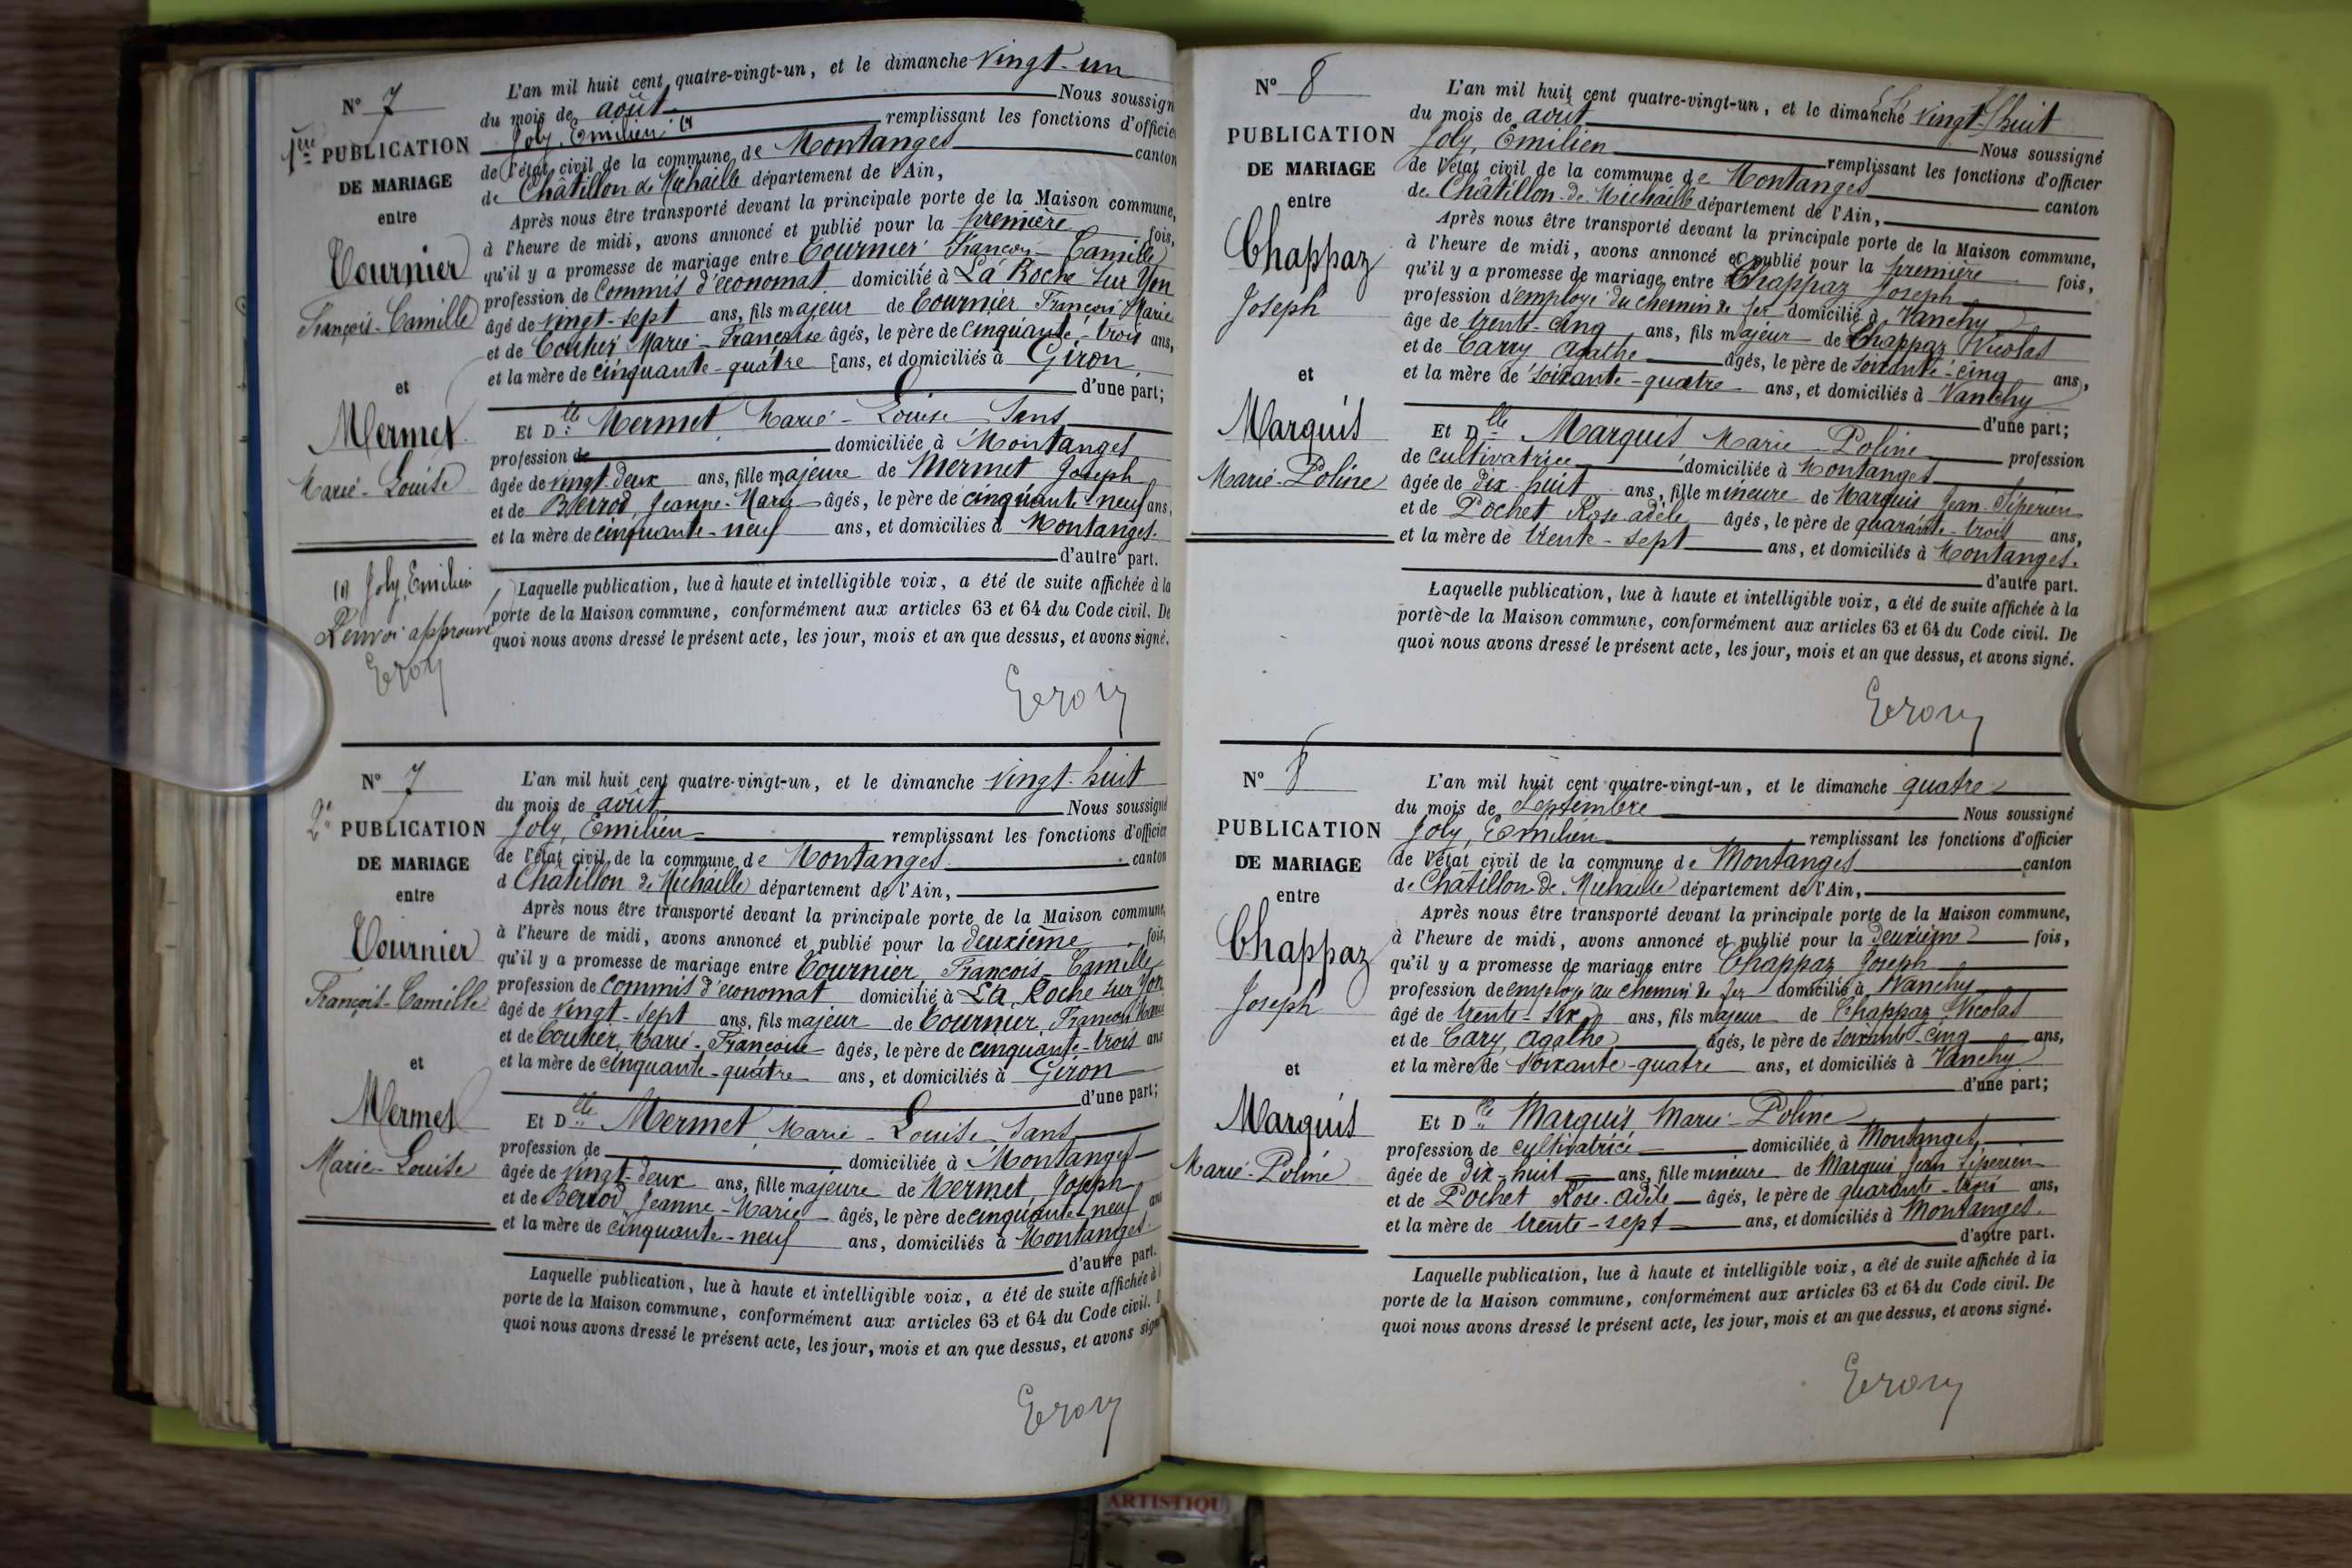 N° 7
1ère PUBLICATION
DE MARIAGE
entre
Tournier
François-Camille
et
Mermet
Marie-Louise
(1) Joly, Emilien
Renvoi approuvé
L'an mil huit cent quatre-vingt-un, et le dimanche vingt-un
du mois de août Nous soussign
Joly, Emilien (1) remplissant les fonctions d'officie
de l'état civil de la commune de Montanges canton
de Châtillon de Michaille département de l'Ain,
Après nous être transporté devant la principale porte de la Maison commune,
à l'heure de midi, avons annoncé et publié pour la première fois,
qu'il y a promesse de mariage entre Tournier François-Camille
profession de Commis d'économat domicilié à La Roche sur Yon
âgé de vingt-sept ans, fils majeur de Tournier François Marie
et de Marie-Françoise âgés, le père de cinquante-trois ans,
et la mère de cinquante-quatre ans, et domiciliés à Giron
d'une part;
Et Dlle Mermet Marie-Louise Sans
profession de domiciliée à Montanges
âgée de vingt-deux ans, fille majeure de Mermet Joseph
et de Berrod, Jeanne-Marie âgés, le père de cinquante-neuf ans,
et la mère de cinquante-neuf ans, et domiciliés à Montanges.
d'autre part.
Laquelle publication, lue à haute et intelligible voix, a été de suite affichée à la
porte de la Maison commune, conformément aux articles 63 et 64 du Code civil. De
quoi nous avons dressé le présent acte, les jour, mois et an que dessus, et avons signé.
N° 7
2e PUBLICATION
DE MARIAGE
entre
Tournier
François-Camille
et
Mermet
Marie-Louise
L'an mil huit cent quatre-vingt-un, et le dimanche vingt-huit
du mois de août Nous soussigné
Joly, Emilien remplissant les fonctions d'officier
de l'état civil de la commune de Montanges canton
d Châtillon de Michaille département de l'Ain,
Après nous être transporté devant la principale porte de la Maison commune,
à l'heure de midi, avons annoncé et publié pour la deuxième fois,
qu'il y a promesse de mariage entre Tournier, François-Camille
profession de Commis d'économat domicilié à La Roche sur Yon
âgé de vingt-sept ans, fils majeur de Tournier, François Marie
et de Marie-Françoise âgés, le père de cinquante-trois ans
et la mère de cinquante-quatre ans, et domiciliés à Giron
d'une part;
Et Dlle Mermet, Marie-Louise Sans
profession de domiciliée à Montanges
âgée de vingt-deux ans, fille majeure de Mermet, Joseph
et de Berrod Jeanne-Marie âgés, le père de cinquante-neuf ans
et la mère de cinquante-neuf ans, domiciliés à Montanges.
d'autre part.
Laquelle publication, lue à haute et intelligible voix, a été de suite affichée à
porte de la Maison commune, conformément aux articles 63 et 64 du Code civil. D
quoi nous avons dressé le présent acte, les jour, mois et an que dessus, et avons sign
N° 8
PUBLICATION
DE MARIAGE
entre
Chappaz
Joseph
et
Marquis
Marie-Poline
L'an mil huit cent quatre-vingt-un, et le dimanche vingt-huit
du mois de août Nous soussigné
Joly, Emilien remplissant les fonctions d'officier
de l'état civil de la commune de Montanges canton
de Châtillon-de-Michaille département de l'Ain,
Après nous être transporté devant la principale porte de la Maison commune,
à l'heure de midi, avons annoncé et publié pour la première fois,
qu'il y a promesse de mariage entre Chappaz Joseph
profession d'employé du chemin de fer domicilié à Vanchy
âge de trente-cinq ans, fils majeur de Chappaz Nicolas
et de Carry Agathe âgés, le père de soixante-cinq ans,
et la mère de soixante-quatre ans, et domiciliés à Vanchy
d'une part;
Et Dlle Marquis Marie-Poline profession
de cultivatrice domiciliée à Montanges
âgée de dix-huit ans, fille mineure de Marquis Jean
et de Pochet Rose-adèle âgés, le père de quarante-trois ans,
et la mère de trente-sept ans, et domiciliés à Montanges.
d'autre part.
Laquelle publication, lue à haute et intelligible voix, a été de suite affichée à la
porte de la Maison commune, conformément aux articles 63 et 64 du Code civil. De
quoi nous avons dressé le présent acte, les jour, mois et an que dessus, et avons signé.
N° 8
PUBLICATION
DE MARIAGE
entre
Chappaz
Joseph
et
Marquis
Marie-Poline
L'an mil huit cent quatre-vingt-un, et le dimanche quatre
du mois de Septembre Nous soussigné
Joly, Emilien remplissant les fonctions d'officier
de l'état civil de la commune de Montanges canton
de Châtillon-de-Michaille département de l'Ain,
Après nous être transporté devant la principale porte de la Maison commune,
à l'heure de midi, avons annoncé et publié pour la deuxième fois,
qu'il y a promesse de mariage entre Chappaz Joseph
profession de employé au chemin de fer domicilié à Vanchy
âgé de trente-six ans, fils majeur de Chappaz Nicolas
et de Cary, Agathe âgés, le père de soixante-cinq ans,
et la mère de soixante-quatre ans, et domiciliés à Vanchy
d'une part;
Et Dlle Marquis, Marie-Poline
profession de cultivatrice domiciliée à Montanges
âgée de dix-huit ans, fille mineure de Marquis Jean
et de Pochet Rose-adèle âgés, le père de quarante-trois ans,
et la mère de trente-sept ans, et domiciliés à Montanges.
d'autre part.
Laquelle publication, lue à haute et intelligible voix, a été de suite affichée à la
porte de la Maison commune, conformément aux articles 63 et 64 du Code civil. De
quoi nous avons dressé le présent acte, les jour, mois et an que dessus, et avons signé.
ARTISTIQU